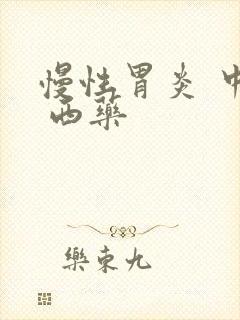 慢性胃炎 中
西藥
樂東九